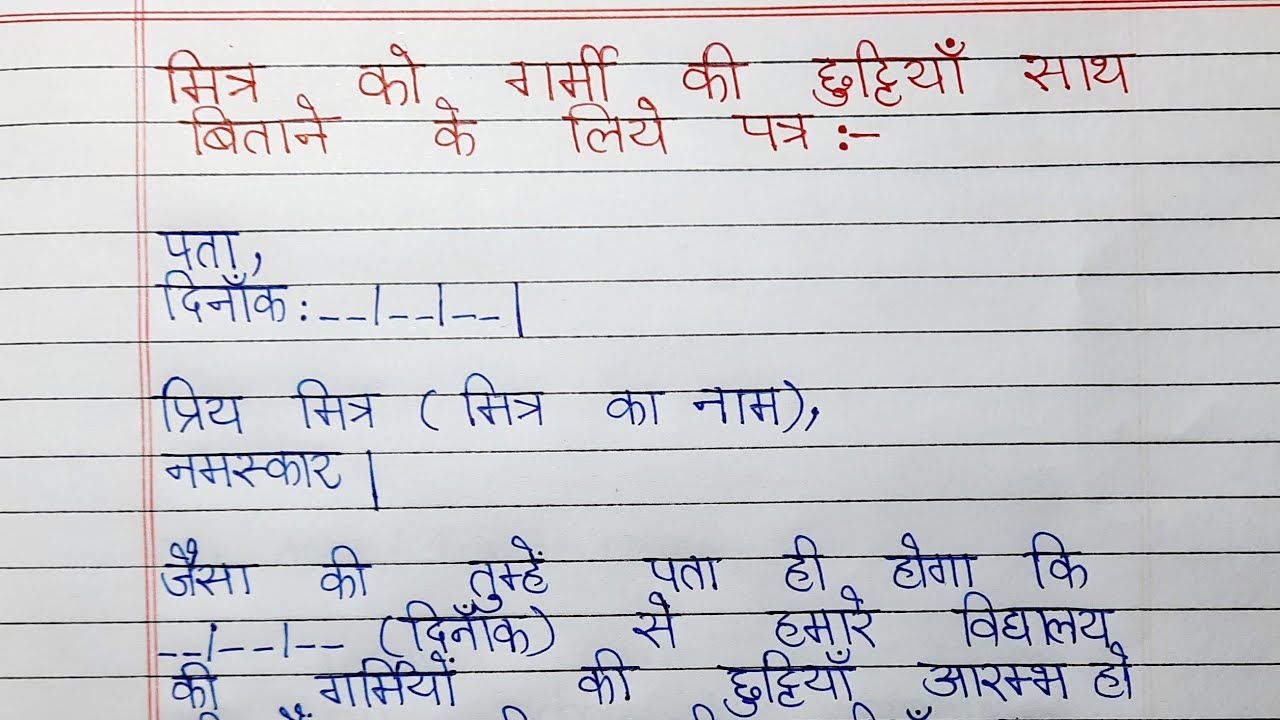 मित्र को गर्मी की छुट्टियाँ साथ
बिताने के लिये पत्र :-
पता,
दिनाँक : --/--/--|
प्रिय मित्र ( मित्र का नाम),
नमस्कार |
जैसा की तुम्हें पता ही होगा कि
--/--/-- (दिनाँक) से हमारे विद्यालय
की गर्मियों की छुट्टियाँ आरम्भ हो